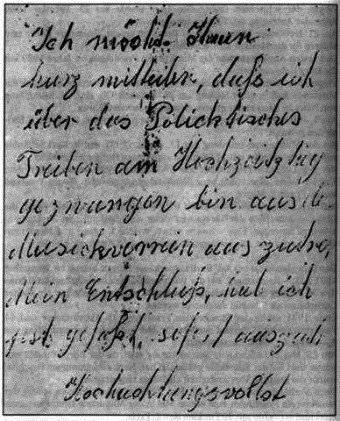 Ich möcht Ihnen
kurz mitteilen, daß ich
über das Politisches
Treiben am Hochzeitstag
gezwungen bin aus
Musickverein aus
Mein Entschluß, hab ich
gefaßt, sofort
Hochachtungsvollst